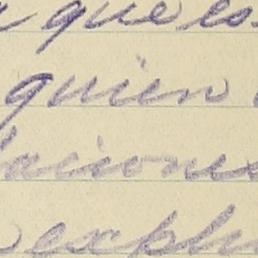 que es
quien
aciones
expli